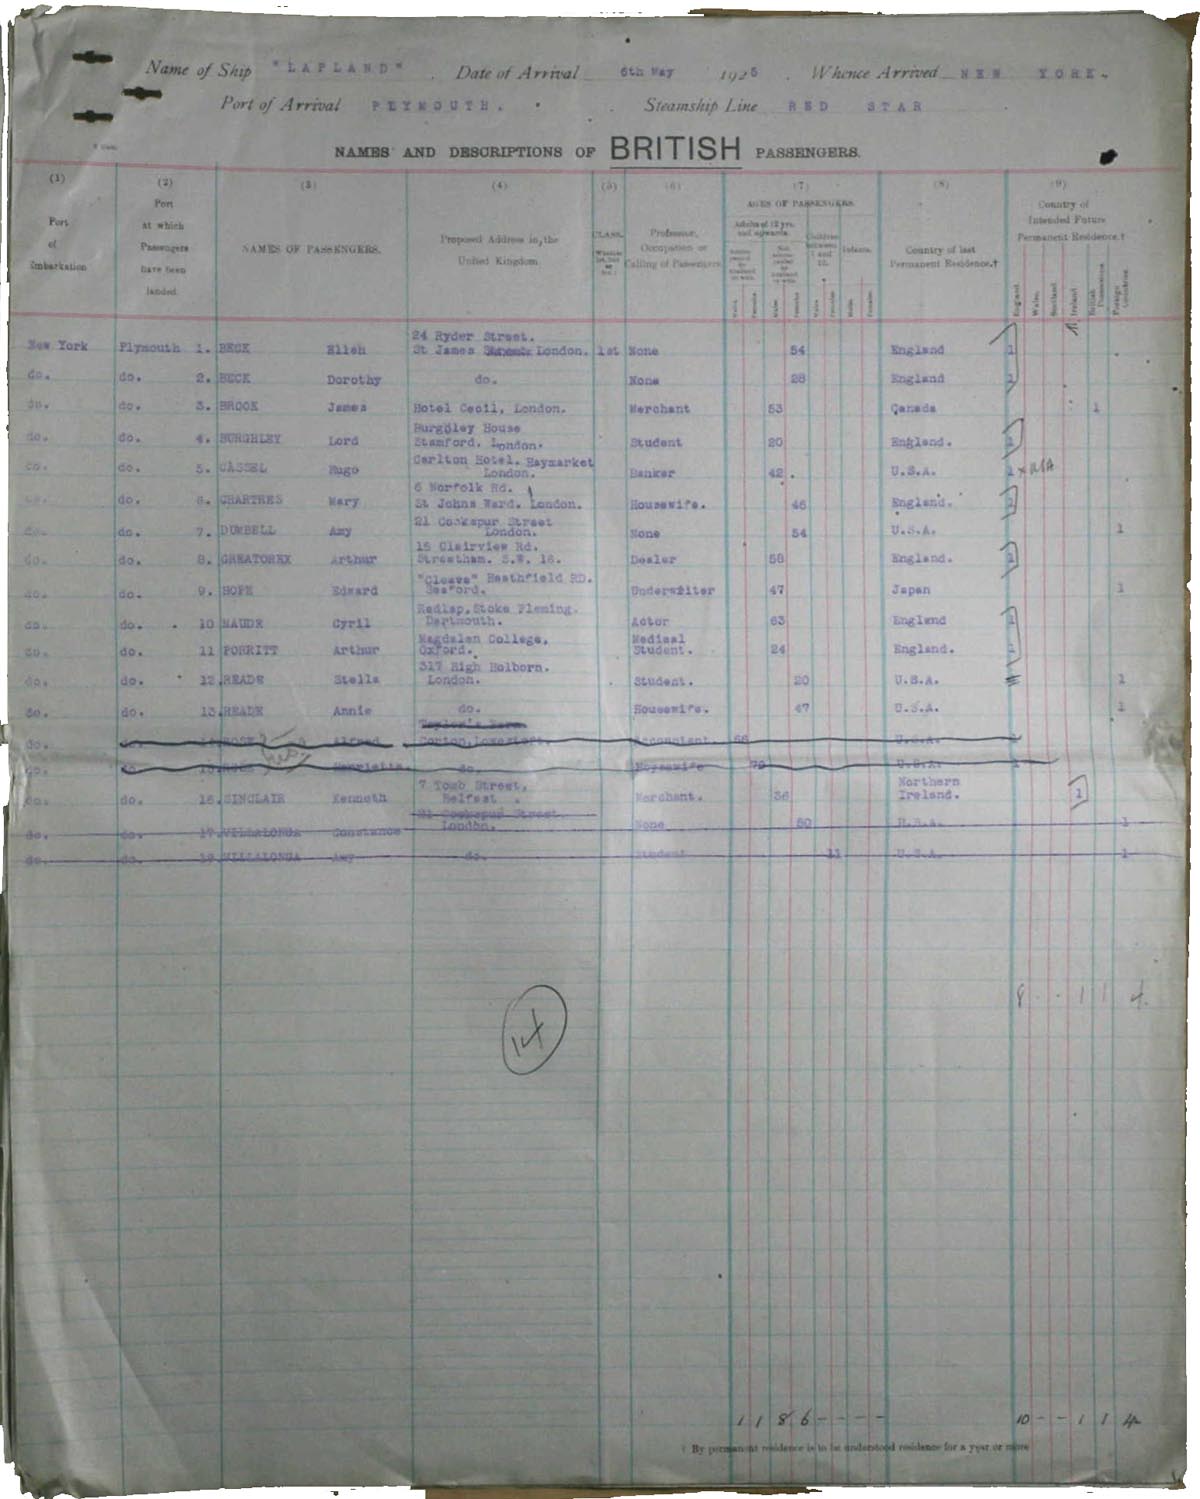 Name of Ship "LAPLAND" Date of Arrival 6th May 1925 Whence Arrived NEW YORK.
Port of Arrival PLYMOUTH. Steamship Line RED STAR
NAMES AND DESCRIPTIONS OF BRITISH PASSENGERS.
(1) (2) (3) (4) (5) (6) (7) (8) (9)
Port of Embarkation
Port at which Passengers have been landed
NAMES OF PASSENGERS.
Proposed Address in the United Kingdom
CLASS.
Profession, Occupation or Calling of Passengers
AGES OF PASSENGERS
Adults of 12 yrs. and upwards.
Children between 1 and 12.
Infants.
Country of last Permanent Residence.†
Country of Intended Future Permanent Residence.†
England. Wales. Scotland. Ireland British Possessions Foreign Countries.
24 Ryder Street.
New York Plymouth 1. BECK Ellen St James London. 1st None 54 England 1
do. do. 2. BECK Dorothy do. None 28 England 1
do. do. 3. BROOK James Hotel Cecil, London. Merchant 53 Canada 1
Burghley House
do. do. 4. BURGHLEY Lord Stamford. London. Student 20 England. 1
Carlton Hotel. Haymarket
do. do. 5. CASSEL Hugo London. Banker 42 U.S.A. 1 x USA
6 Norfolk Rd.
do. do. 6. CHARTRES Mary St Johns Ward. London. Housewife. 46 England. 1
21 Cockspur Street
do. do. 7. DUMBELL Amy London. None 54 U.S.A. 1
15 Clairview Rd.
do. do. 8. GREATOREX Arthur Streatham. S.W. 16. Dealer 58 England. 1
"Cleave" Heathfield RD.
do. do. 9. HOPE Edward Seaford. Underwriter 47 Japan 1
Redlap, Stoke Fleming.
do. do. 10 MAUDE Cyril Dartmouth. Actor 63 England 1
Magdalen College, Medical
do. do. 11 PORRITT Arthur Oxford. Student. 24 England. 1
317 High Holborn.
do. do. 12. READE Stella London. Student. 20 U.S.A. 1
do. do. 13. READE Annie do. Housewife. 47 U.S.A. 1
do. do. Alfred Corton, Lowestoft. Accountant. 66 U.S.A.
do. do. 15. Henrietta. do. Housewife U.S.A.
7 Tomb Street, Northern
do. do. 16. SINCLAIR Kenneth Belfast. Merchant. 36 Ireland. 1
21 Cockspur Street.
do. do. 17. VILLALONGA Constance London. None 50 U.S.A. 1
do. do. 18. VILLALONGA Amy do. Student 11 U.S.A. 1
8 - - 1 1 4
14
1 1 8 6 - - - - 10 - - 1 1 4
† By permanent residence is to be understood residence for a year or more